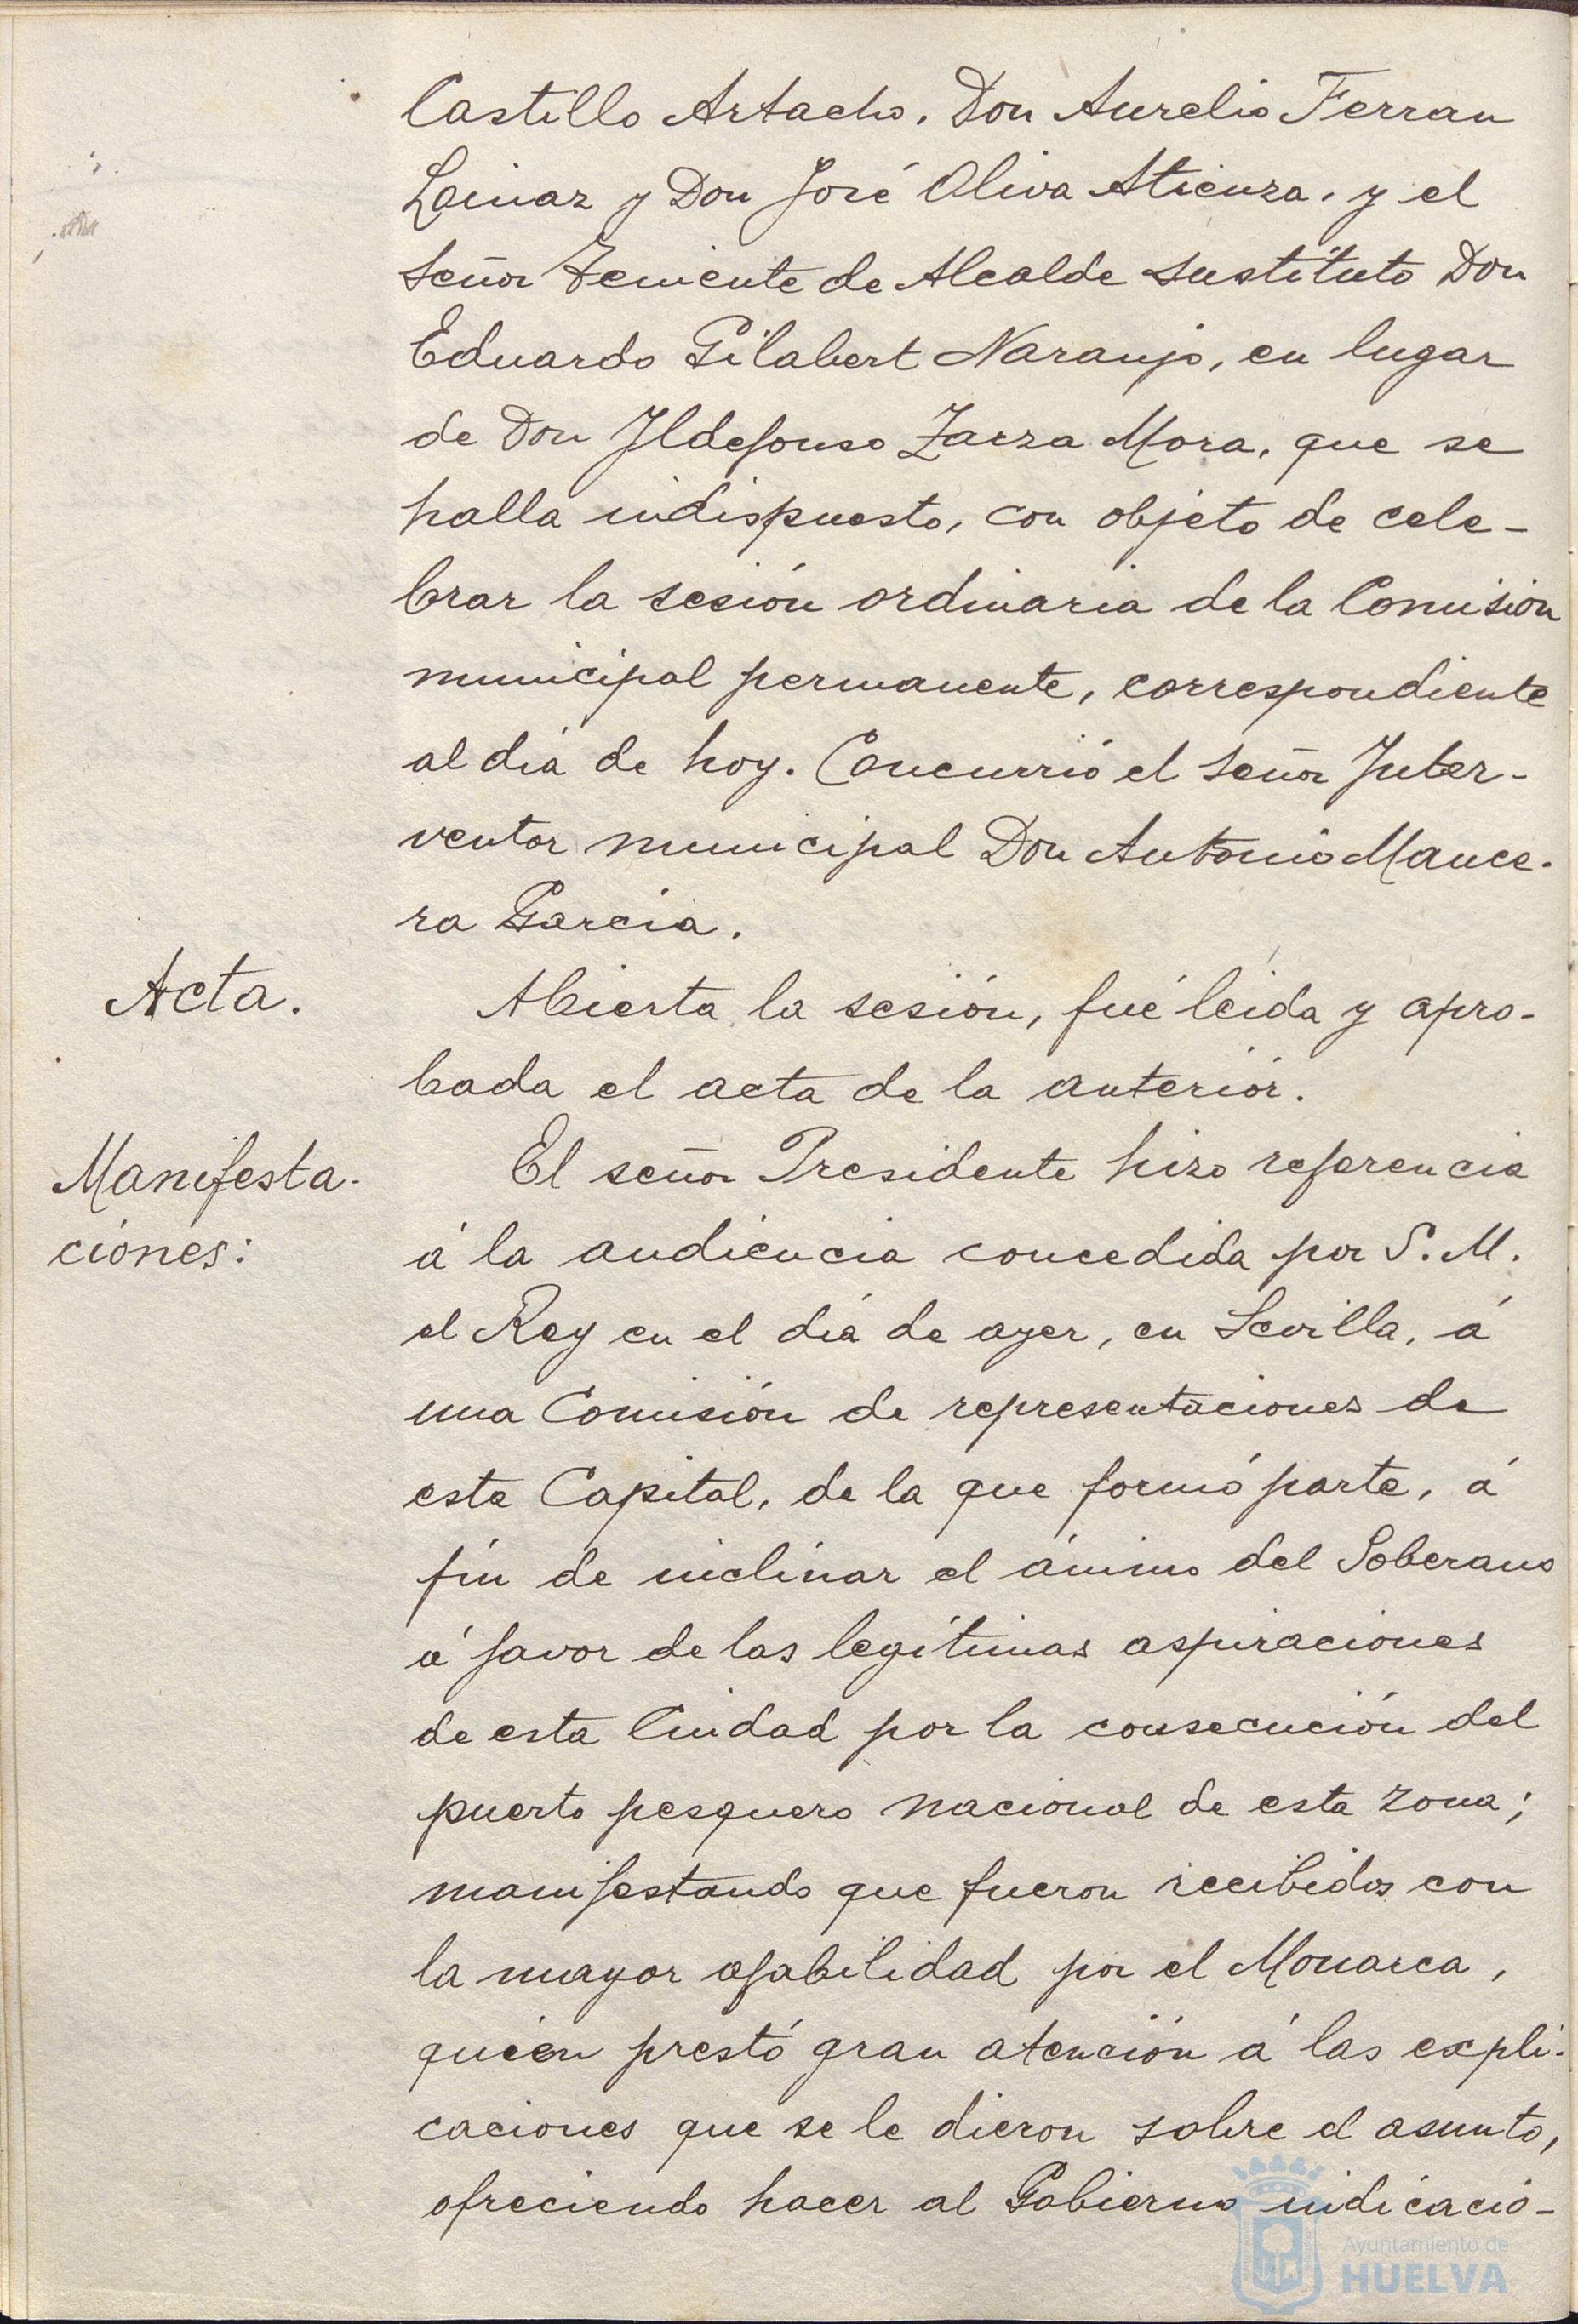 Castillo Artacho, Don Aurelio Ferran
Lainaz y Don José Oliva Atienza, y el
señor Teniente de Alcalde sustituto Don
Eduardo Gilabert Naranjo, en lugar
de Don Ildefonso Zarza Mora, que se
halla indispuesto, con objeto de cele-
brar la sesión ordinaria de la Comisión
municipal permanente, correspondiente
al día de hoy. Concurrió el señor Inter-
ventor municipal Don Antonio Mance-
ra Garcia.
Acta.
Abierta la sesión, fué leida y apro-
bada el acta de la anterior.
Manifesta-
ciones:
El señor Presidente hizo referencia
á la audiencia concedida por S. M.
el Rey en el día de ayer, en Sevilla, á
una Comisión de representaciones de
esta Capital, de la que formó parte, á
fin de inclinar el ánimo del Soberano
á favor de las legítimas aspiraciones
de esta Ciudad por la consecución del
puerto pesquero nacional de esta zona;
manifestando que fueron recibidos con
la mayor afabilidad por el Monarca,
quien prestó gran atención á las expli-
caciones que se le dieron sobre el asunto,
ofreciendo hacer al Gobierno indicacio-
Ayuntamiento de
HUELVA